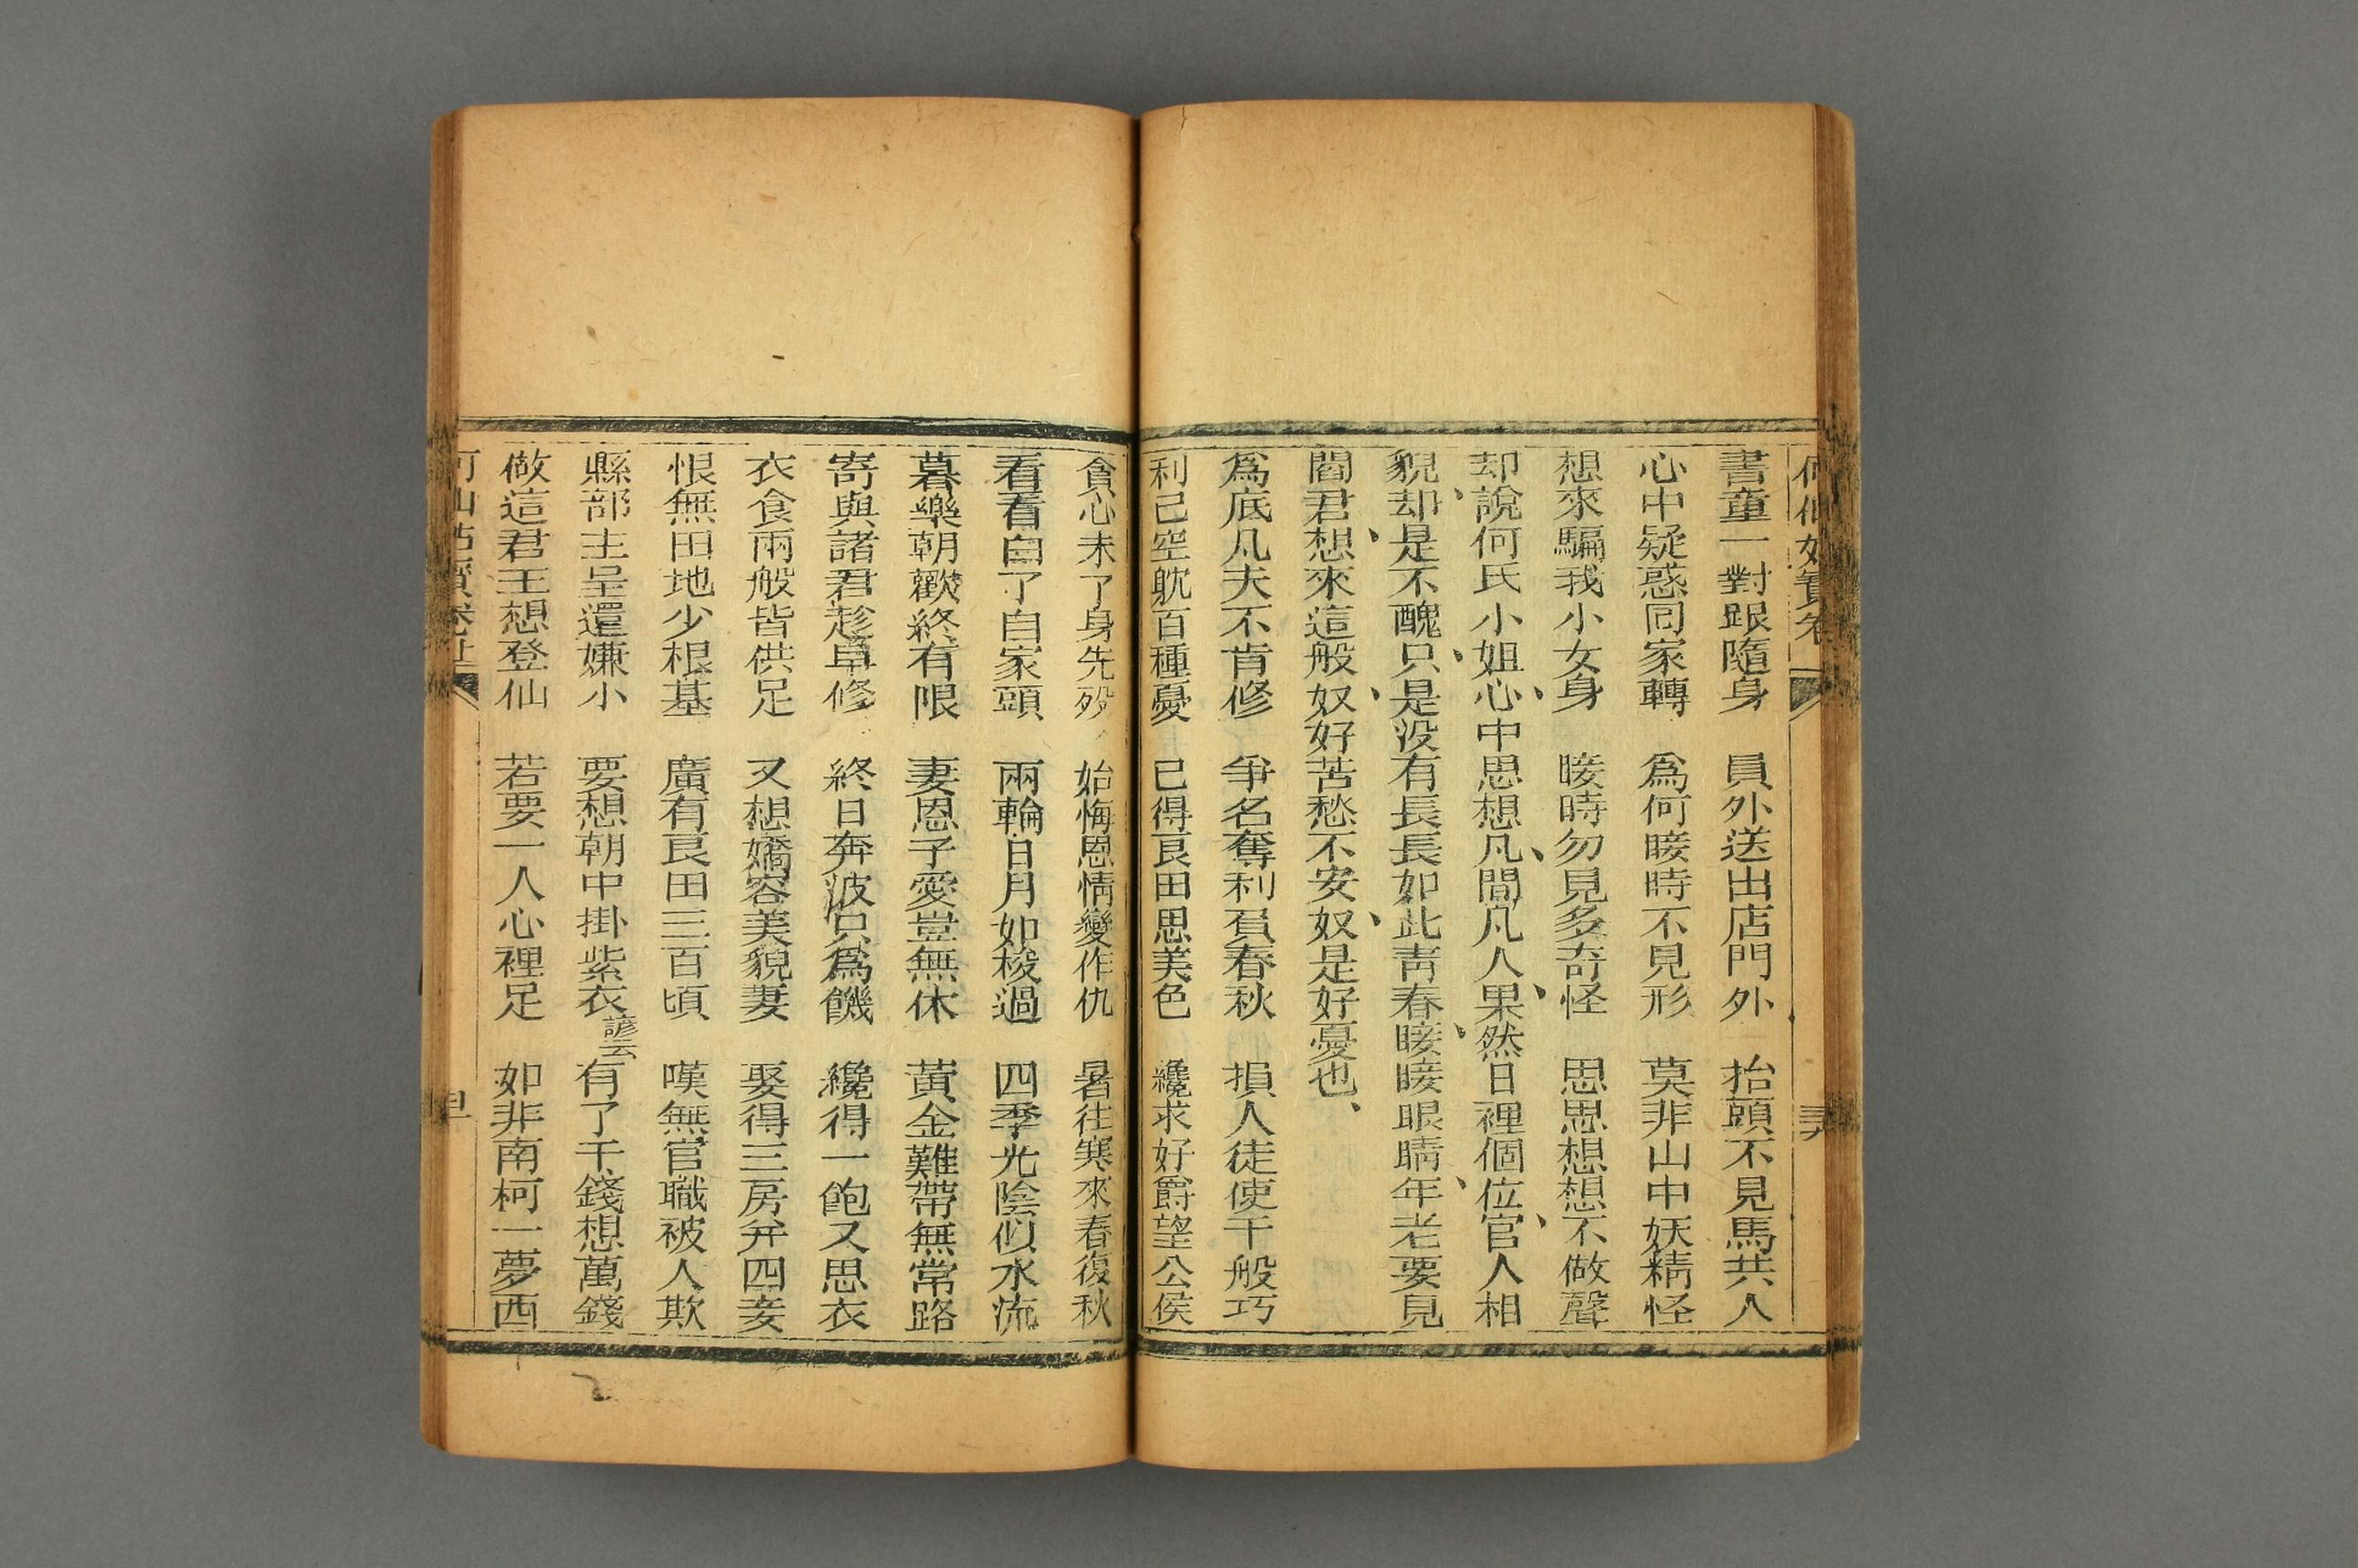 書童一對跟隨身　員外送出店門外　抬頭不見馬共人
心中疑惑回家轉　爲何睖時不見形　莫非山中妖精怪
想來騙我小女身　睖時勿見多奇怪　思思想想不做聲
却說何氏小姐心、中思想凡、間凡人果、然日裡個位官、人相
貌却、是不醜只、是没有長長如此靑春睖、睖眼睛年、老要見
閻君、想來這般、奴好苦愁不安奴、是好憂也、
爲底凡夫不肯修　爭名奪利負春秋　損人徒使千般巧
利己空躭百種憂　已得良田思美色　纔求好爵望公侯
貪心未了身先歿　始悔恩情變作仇　暑往寒來春復秋
看看白了自家頭　兩輪日月如梭過　四季光陰似水流
暮樂朝歡終有限　妻恩子愛豈無休　黃金難帶無常路
寄與諸君趁早修　終日奔波只爲饑　纔得一飽又思衣
衣食兩般皆供足　又想嬌容美貌妻　娶得三房并四妾
恨無田地少根基　廣有良田三百頃　嘆無官職被人欺
縣部主呈還嫌小　要想朝中掛紫衣　諺云　有了千錢想萬錢
做這君王想登仙　若要一人心裡足　如非南柯一夢西